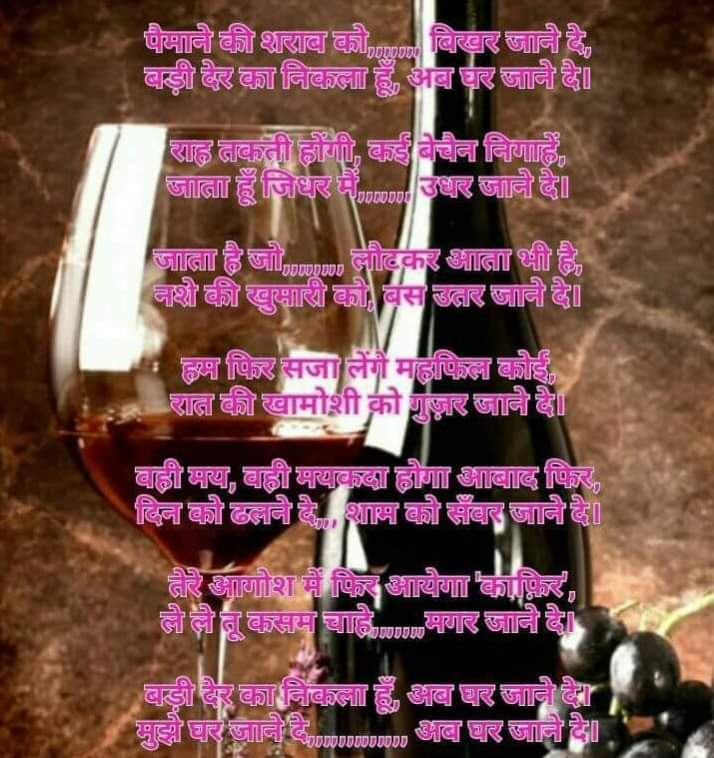 पैमाने की शराब को,,,,,,,, बिखर जाने दे,
बड़ी देर का निकला हूँ, अब घर जाने दे।
राह तकती होंगी, कई बेचैन निगाहें,
जाता हूँ जिधर मैं,,,,,,,, उधर जाने दे।
जाता है जो,,,,,,,,, लौटकर आता भी है,
नशे की खुमारी को, बस उतर जाने दे।
हम फिर सजा लेंगे महफिल कोई,
रात की खामोशी को गुज़र जाने दे।
वही मय, वही मयकदा होगा आबाद फिर,
दिन को ढलने दे,,,, शाम को सँवर जाने दे।
तेरे आगोश में फिर आयेगा 'काफ़िर',
ले ले तू कसम चाहे,,,,,,,,मगर जाने दे।
बड़ी देर का निकला हूँ, अब घर जाने दे।
मुझे घर जाने दे,,,,,,,,,,,,,, अब घर जाने दे।